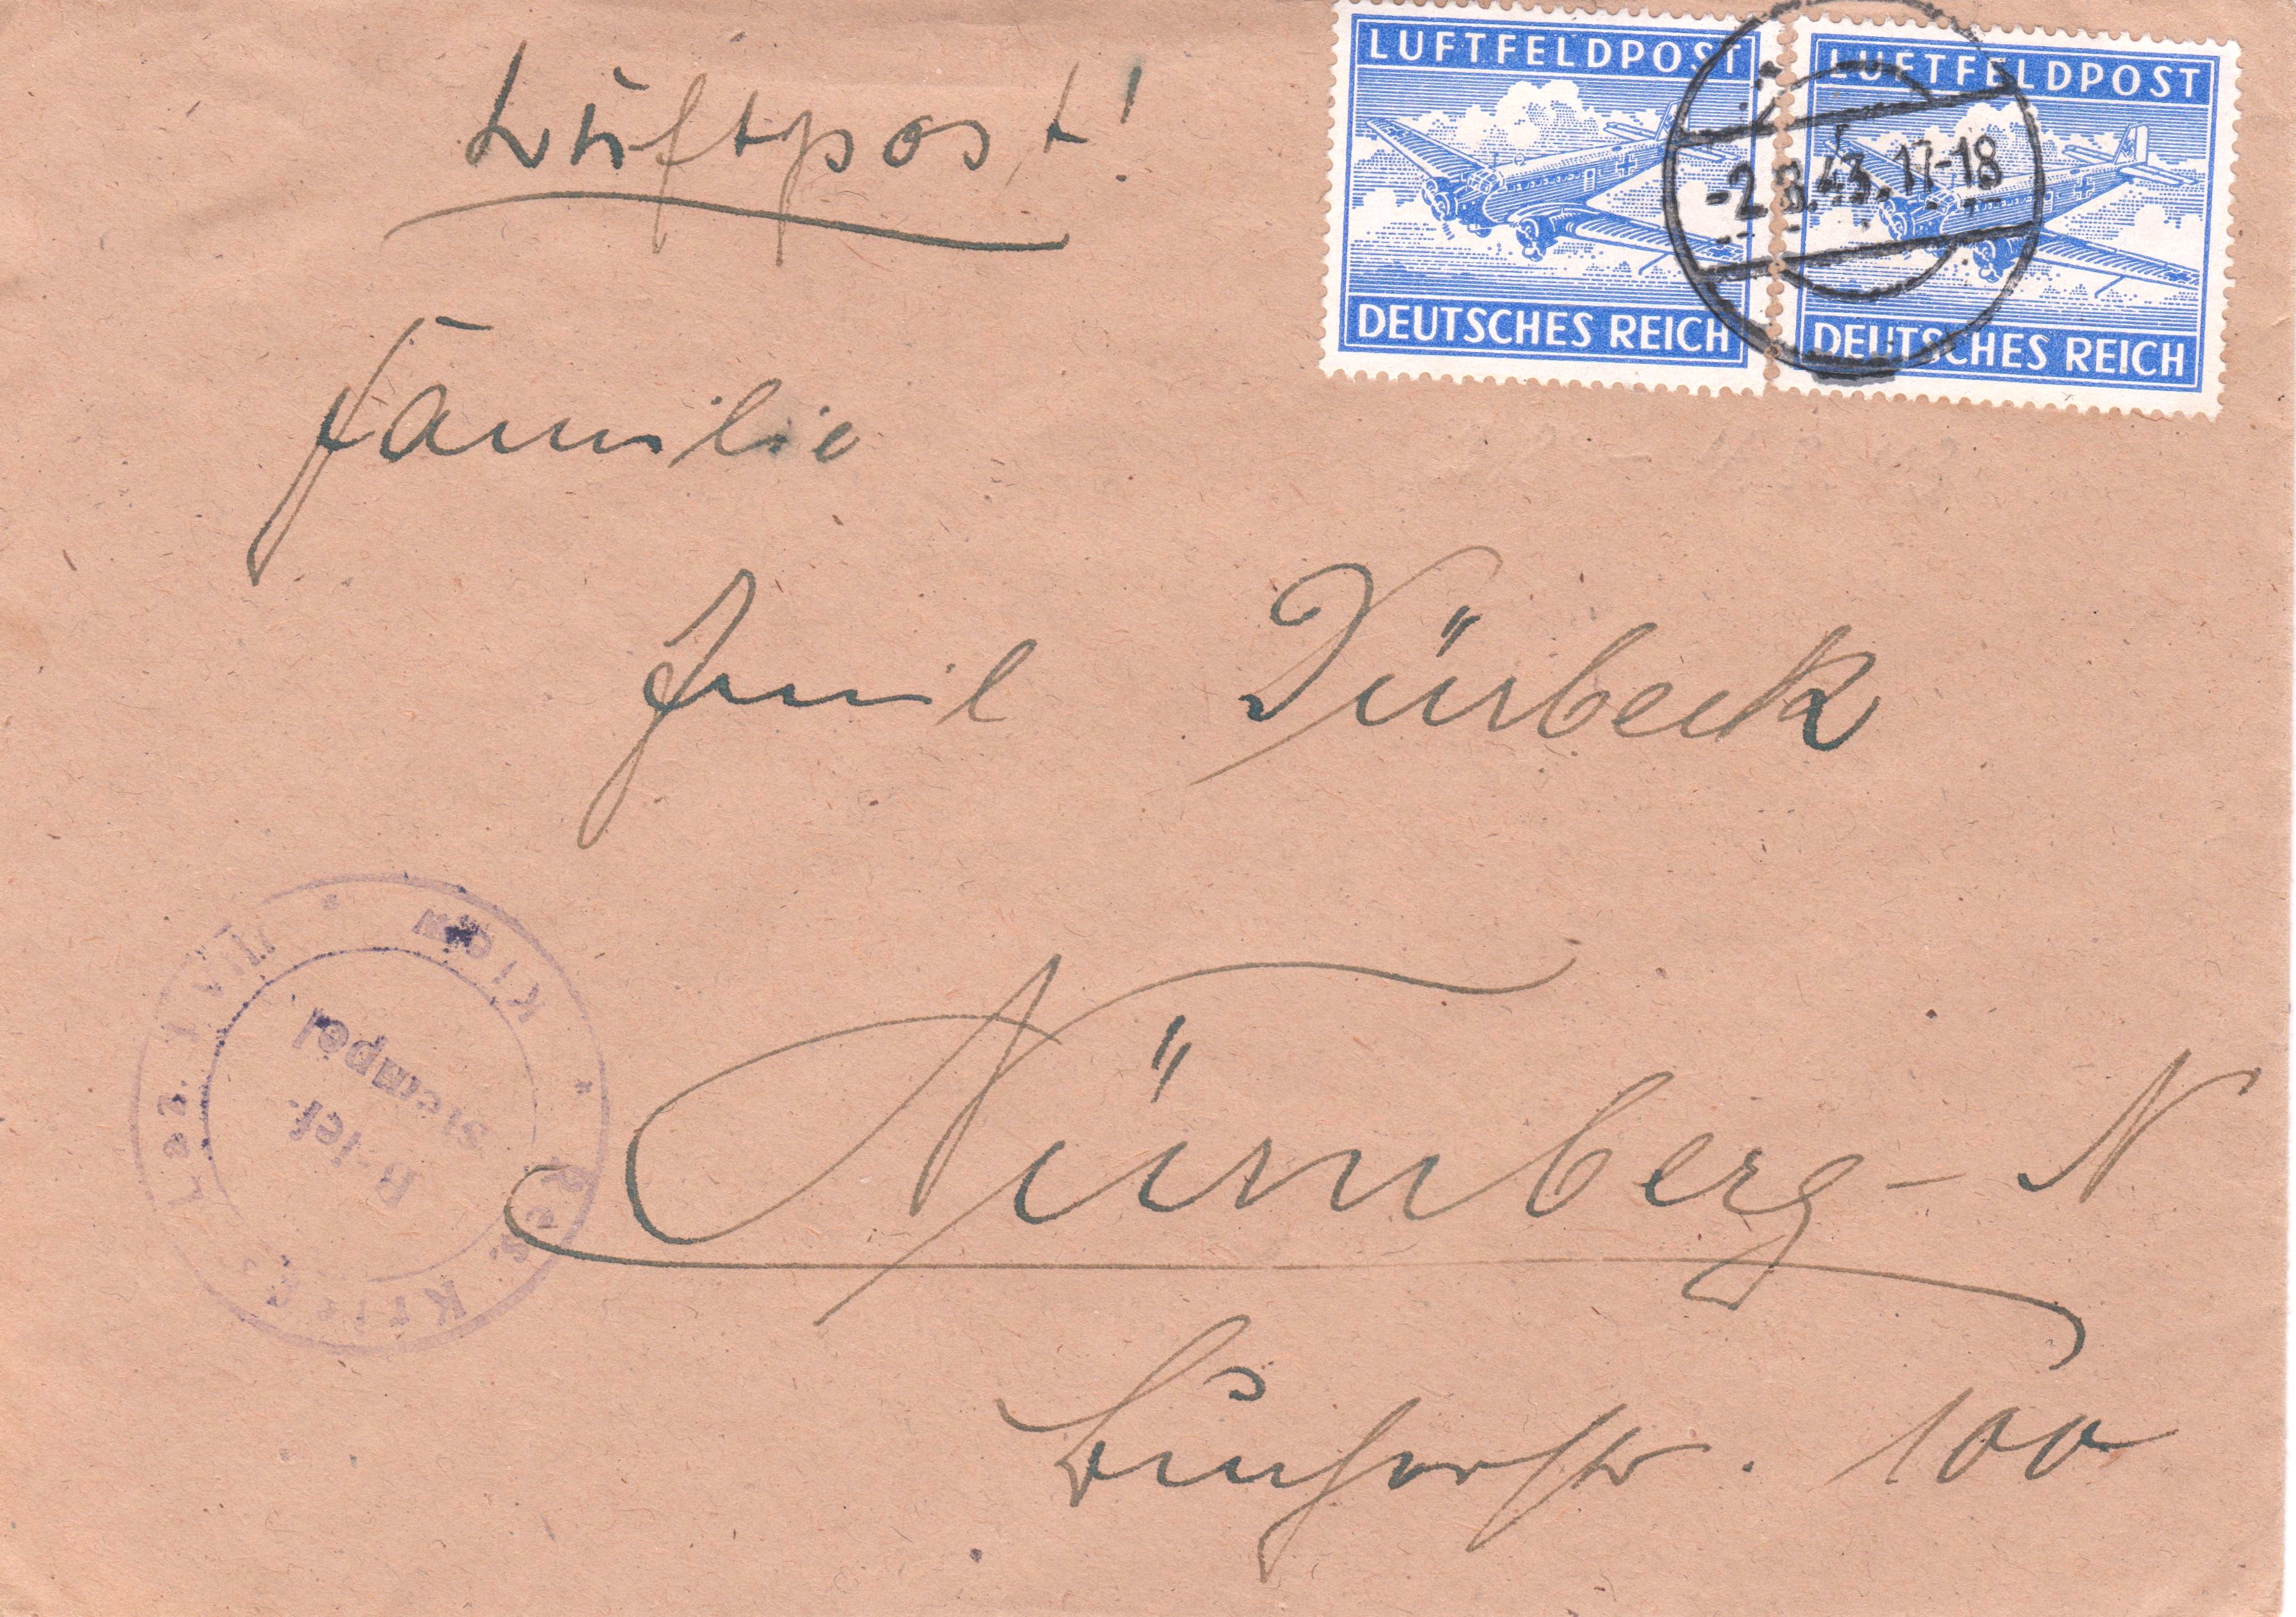 Luftpost!
LUFTFELDPOST
DEUTSCHES REICH
LUFTFELDPOST
DEUTSCHES REICH
-2.8.43.17-18
Familie
Dürbeck
Nürnberg-N
100
Brief-
stempel
Res. Kriegs Laz.
Kiew